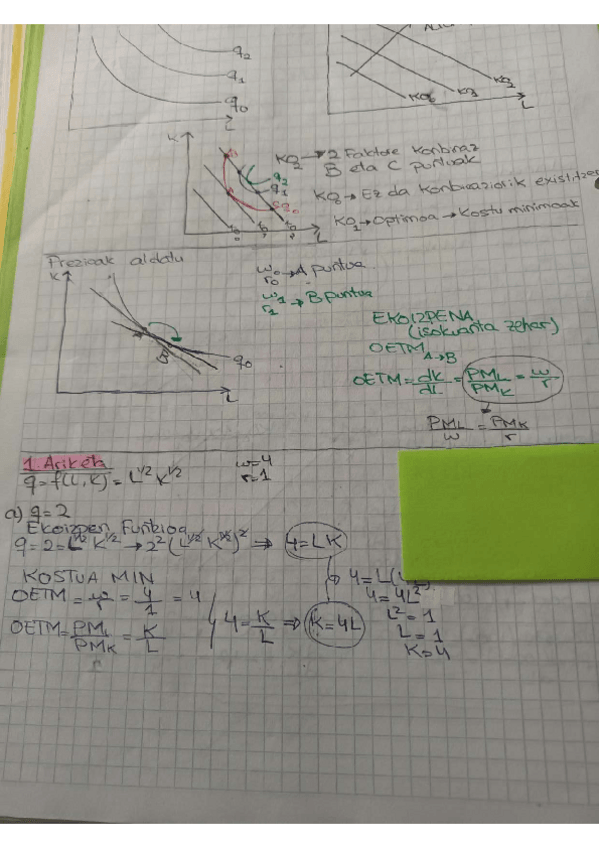 q2
q1
q0
L
KQ0
KQ1
KQ2
L
K
KQ2 → 2 Faktore konbinaz
B eta C puntuak
q2
q1
q0
KQ0 → Ez da konbinaziorik existitzen
KQ1 → Optimoa → Kostu minimoak
L
Prezioak aldatu
K
A
B
q0
L
w0
r0 → A puntua
w1
r1 → B puntua
EKOIZPENA
(isokuanta zehar)
OETM A→B
OETM = dK/dL = PML/PMK = w/r
PML/w = PMK/r
1. Ariketa
w=4
r=1
q = f(L, K) = L^1/2 K^1/2
a) q = 2
Ekoizpen Funtzioa
q = 2 = L^1/2 K^1/2 → 2² (L^1/2 K^1/2)² ⇒ 4 = LK
KOSTUA MIN
OETM = w/r = 4/1 = 4
OETM = PML/PMK = K/L
4 = K/L ⇒ K = 4L
4 = L(
4 = 4L²
L² = 1
L = 1
K = 4